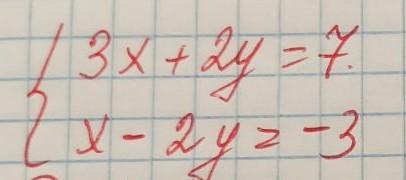 3x + 2y = 7.
x - 2y = -3